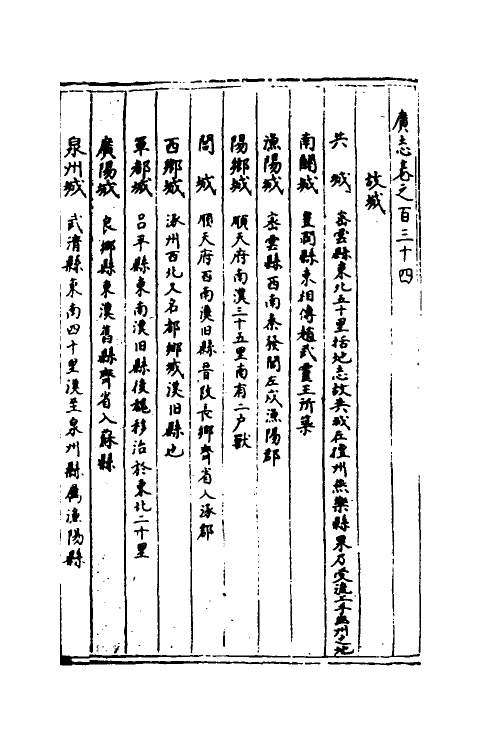 廣志卷之百三十四
故城
共城 密雲縣東北五十里括地志故共城在檀州燕樂縣界乃受流工于幽州之地
南關城 縣東相傳趙武靈王所築
漁陽城 密雲縣西南秦發閭左戍漁陽郡
陽鄉城 順天府南漢三十五里南有二户
閻城 順天府西南漢旧縣晉改長鄉齊省入涿郡
西鄉城 涿州西北又名都鄉城漢旧縣也
軍都城 昌平縣東南漢旧縣後魏移治於東北二十里
廣陽城 良鄉縣東漢舊縣齊省入薊縣
泉州城 武清縣東南四十里漢至泉州縣屬漁陽縣